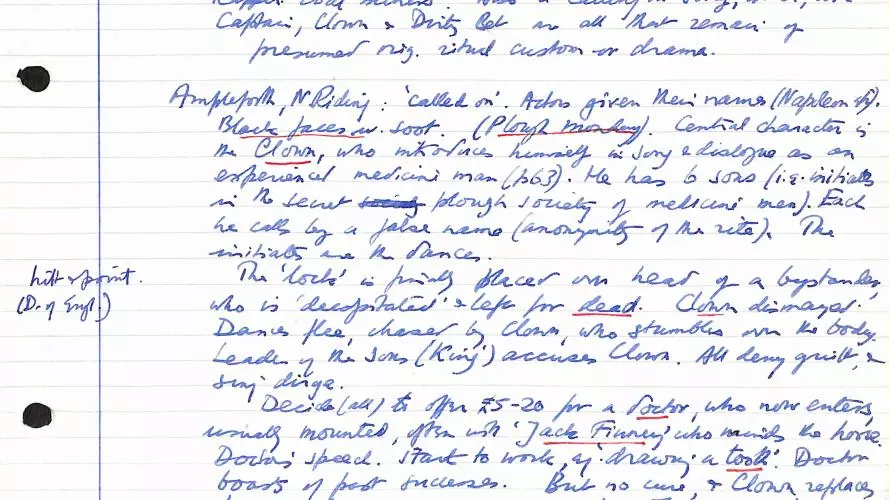 Captain, Clown & Dirty Bet are all that remain of
presumed orig. ritual custom or drama.
Ampleforth, N Riding: 'called on'. Actors given their names (Napoleon etc).
Black faces w. soot. (Plough Monday). Central character is
the Clown, who introduces himself in song & dialogue as an
experienced medicine man (p63). He has 6 sons (i.e. initiates
in the secret society plough society of medicine men). Each
he calls by a false name (anonymity of the rite). The
initiates are the dancers.
hilt & point.
(D. of Engl.)
The 'lock' is finally placed over head of a bystander,
who is 'decapitated' & left for dead. Clown dismayed.
Dancers flee, chased by Clown, who stumbles over the body.
Leader of the sons (King') accuses Clown. All deny guilt, &
sing dirge.
Decide (all) to offer £5-20 for a doctor, who now enters,
usually mounted, often with 'Jack Finney' who minds the horse.
Doctor's speech. Start to work, eg 'drawing a tooth'. Doctor
boasts of past successes. But no cure, & Clown replaces